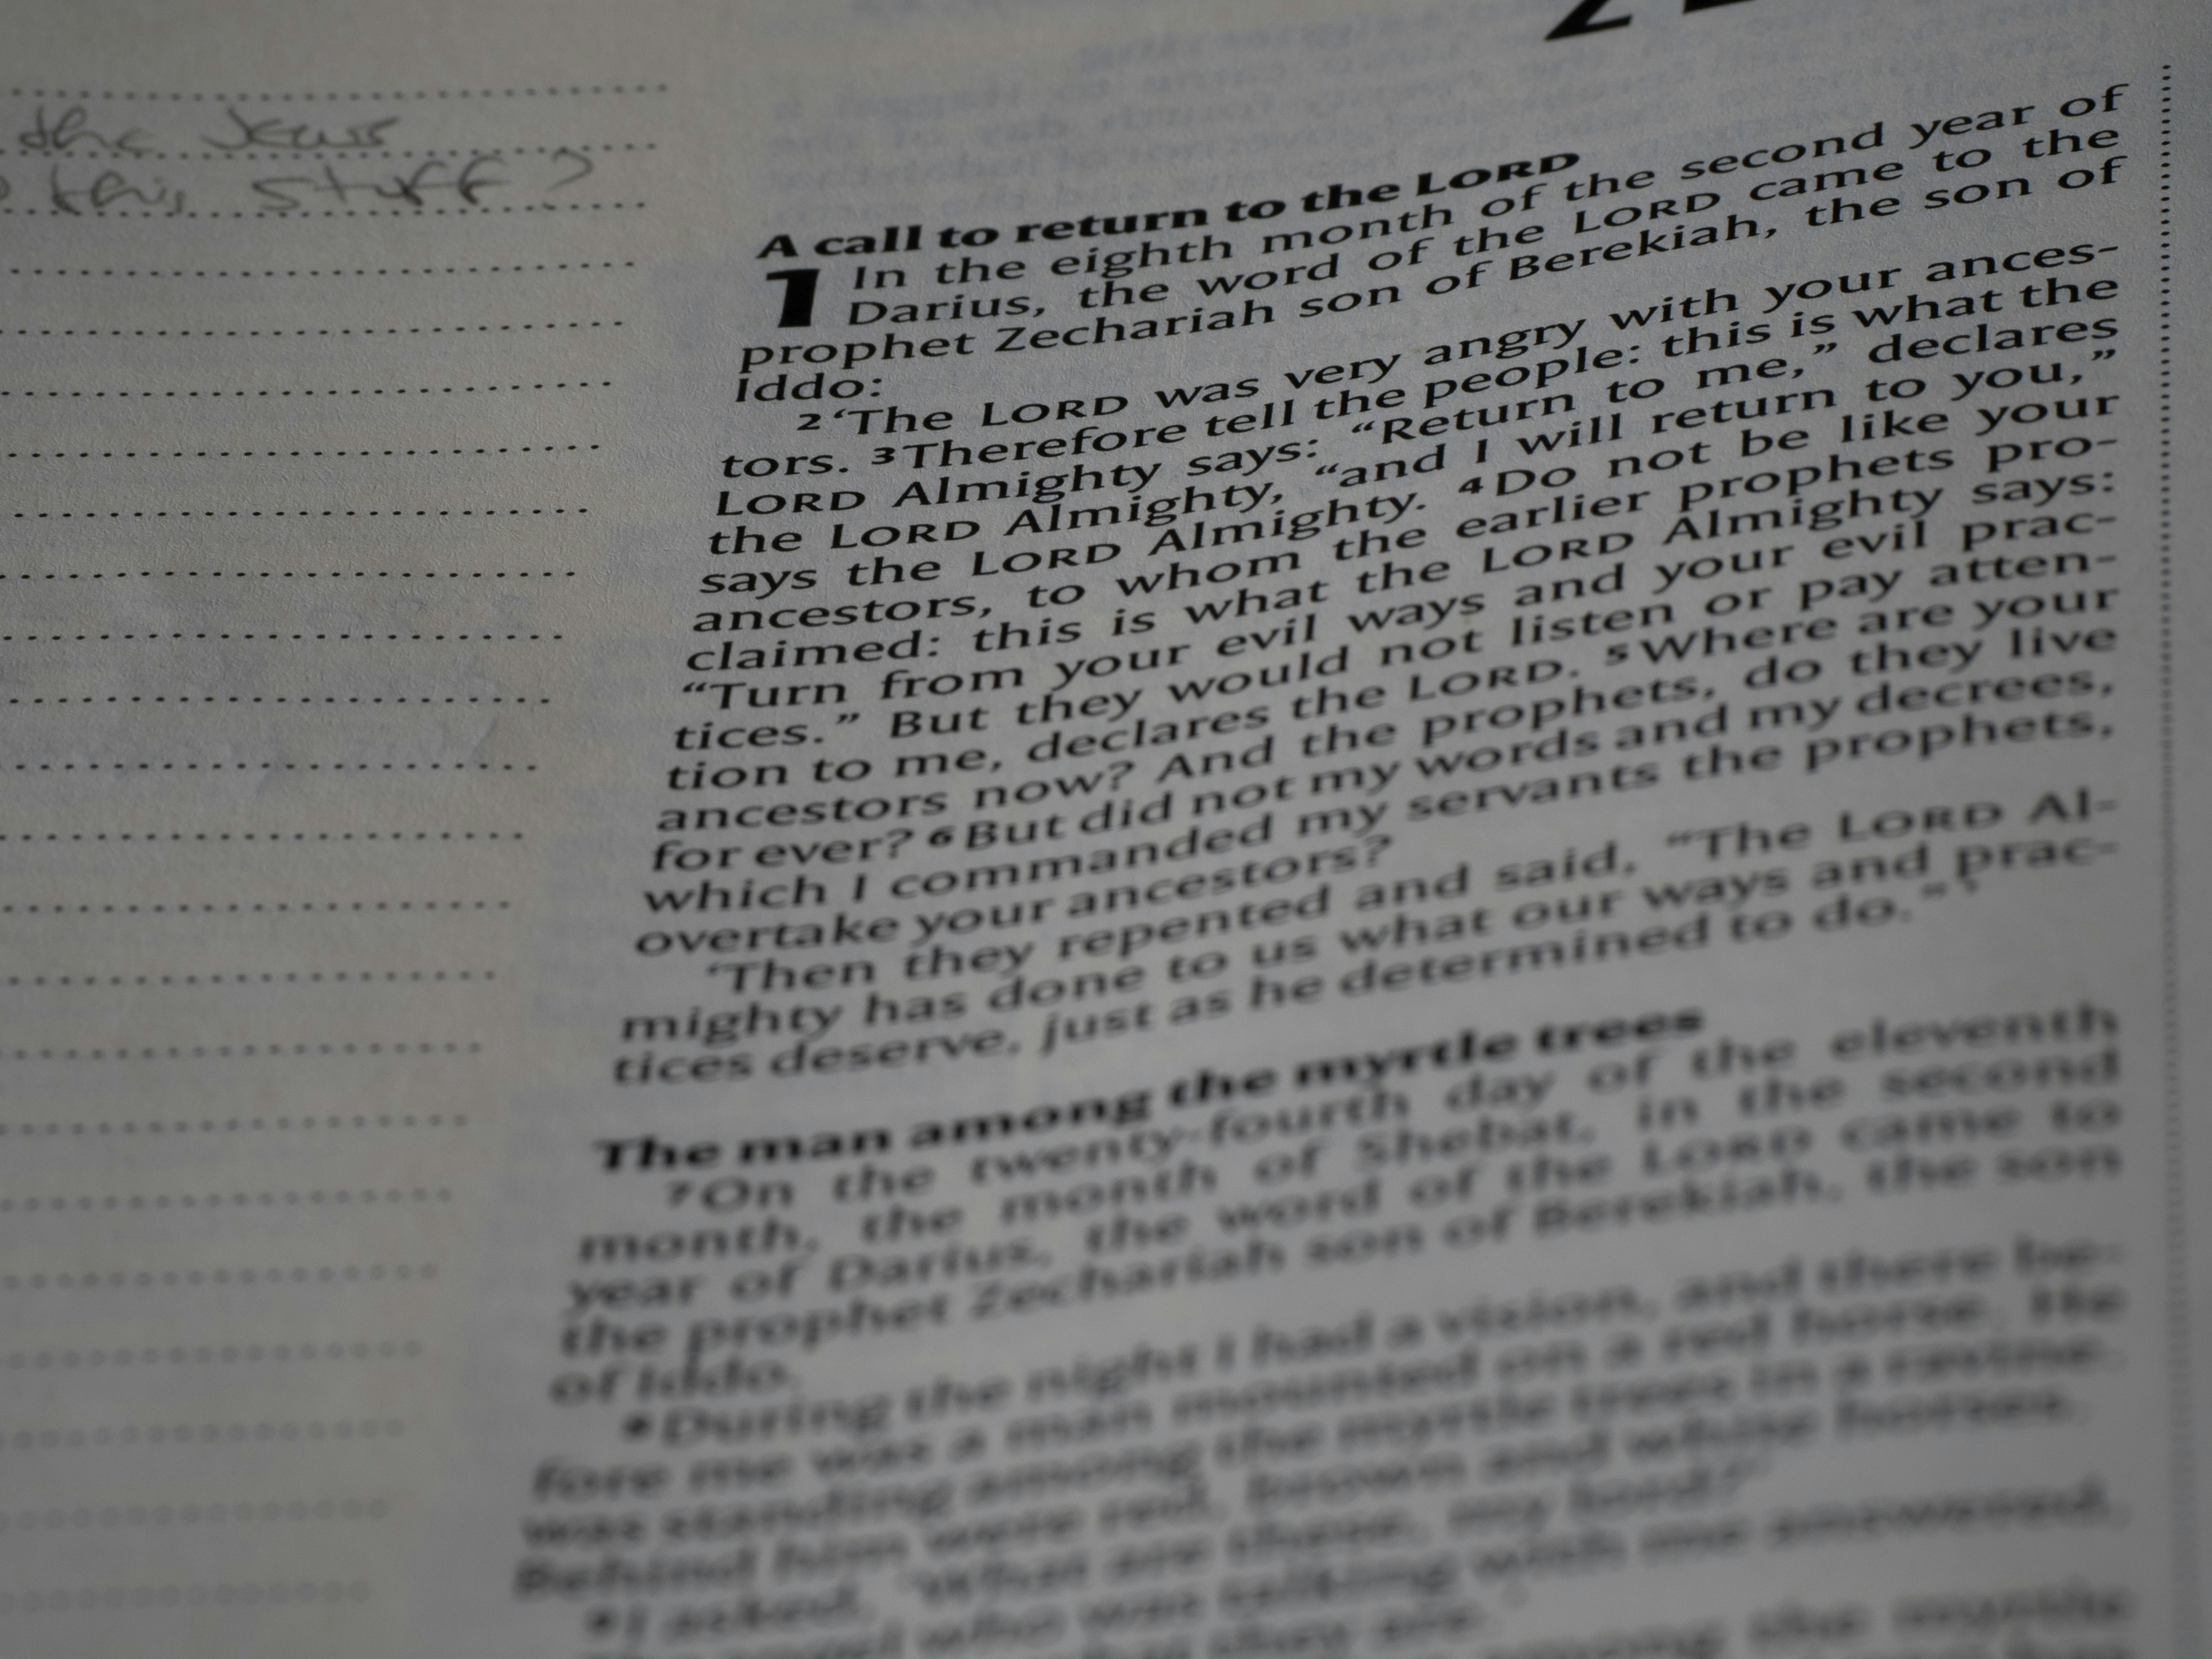 the Jews
this stuff?
A call to return to the LORD
1 In the eighth month of the second year of
Darius, the word of the LORD came to the
prophet Zechariah son of Berekiah, the son of
Iddo:
2 ‘The LORD was very angry with your ances-
tors. 3 Therefore tell the people: this is what the
LORD Almighty says: “Return to me,” declares
the LORD Almighty, “and I will return to you,”
says the LORD Almighty. 4 Do not be like your
ancestors, to whom the earlier prophets pro-
claimed: this is what the LORD Almighty says:
“Turn from your evil ways and your evil prac-
tices.” But they would not listen or pay atten-
tion to me, declares the LORD. 5 Where are your
ancestors now? And the prophets, do they live
for ever? 6 But did not my words and my decrees,
which I commanded my servants the prophets,
overtake your ancestors?
‘Then they repented and said, “The LORD Al-
mighty has done to us what our ways and prac-
tices deserve, just as he determined to do.” ’
The man among the myrtle trees
7 On the twenty-fourth day of the eleventh
month, the month of Shebat, in the second
year of Darius, the word of the LORD came to
the prophet Zechariah son of Berekiah, the son
of Iddo.
8 During the night I had a vision, and there be-
fore me was a man mounted on a red horse. He
was standing among the myrtle trees in a ravine.
Behind him were red, brown and white horses.
9 I asked, ‘What are these, my lord?’
who was talking with me answered,
they are.’
among the myrtle